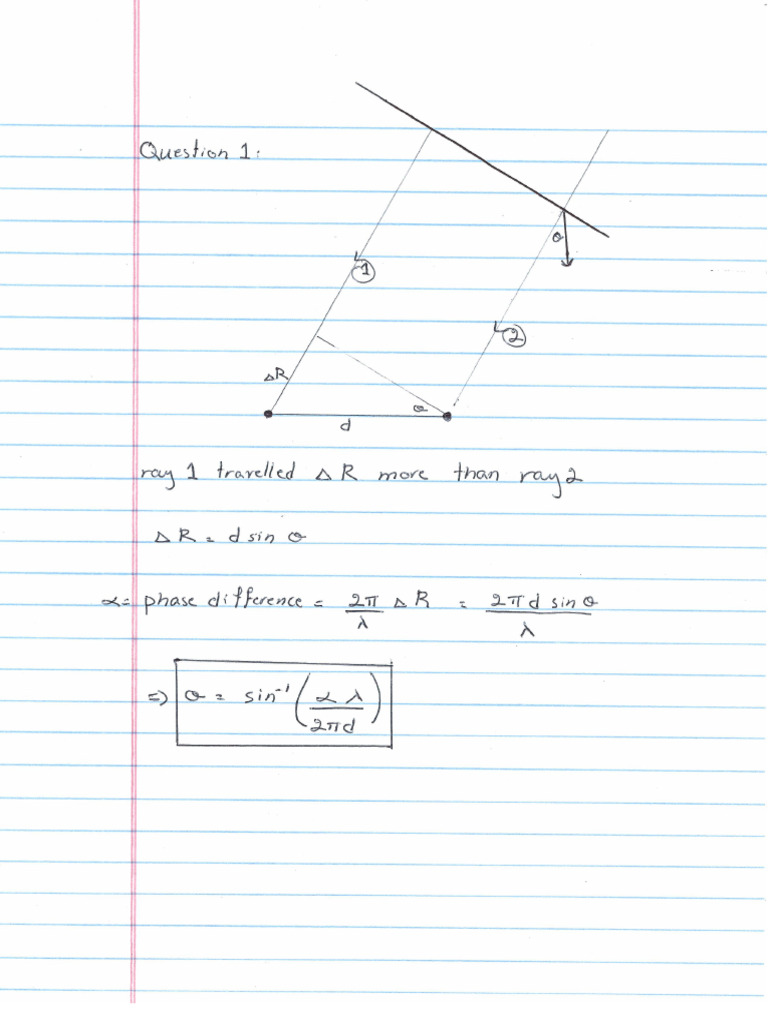 Question 1:
θ
1
2
ΔR
θ
d
ray 1 travelled ΔR more than ray 2
ΔR = d sin θ
α = phase difference = 2π/λ ΔR = 2πd sin θ/λ
=> θ = sin⁻¹ (αλ/2πd)